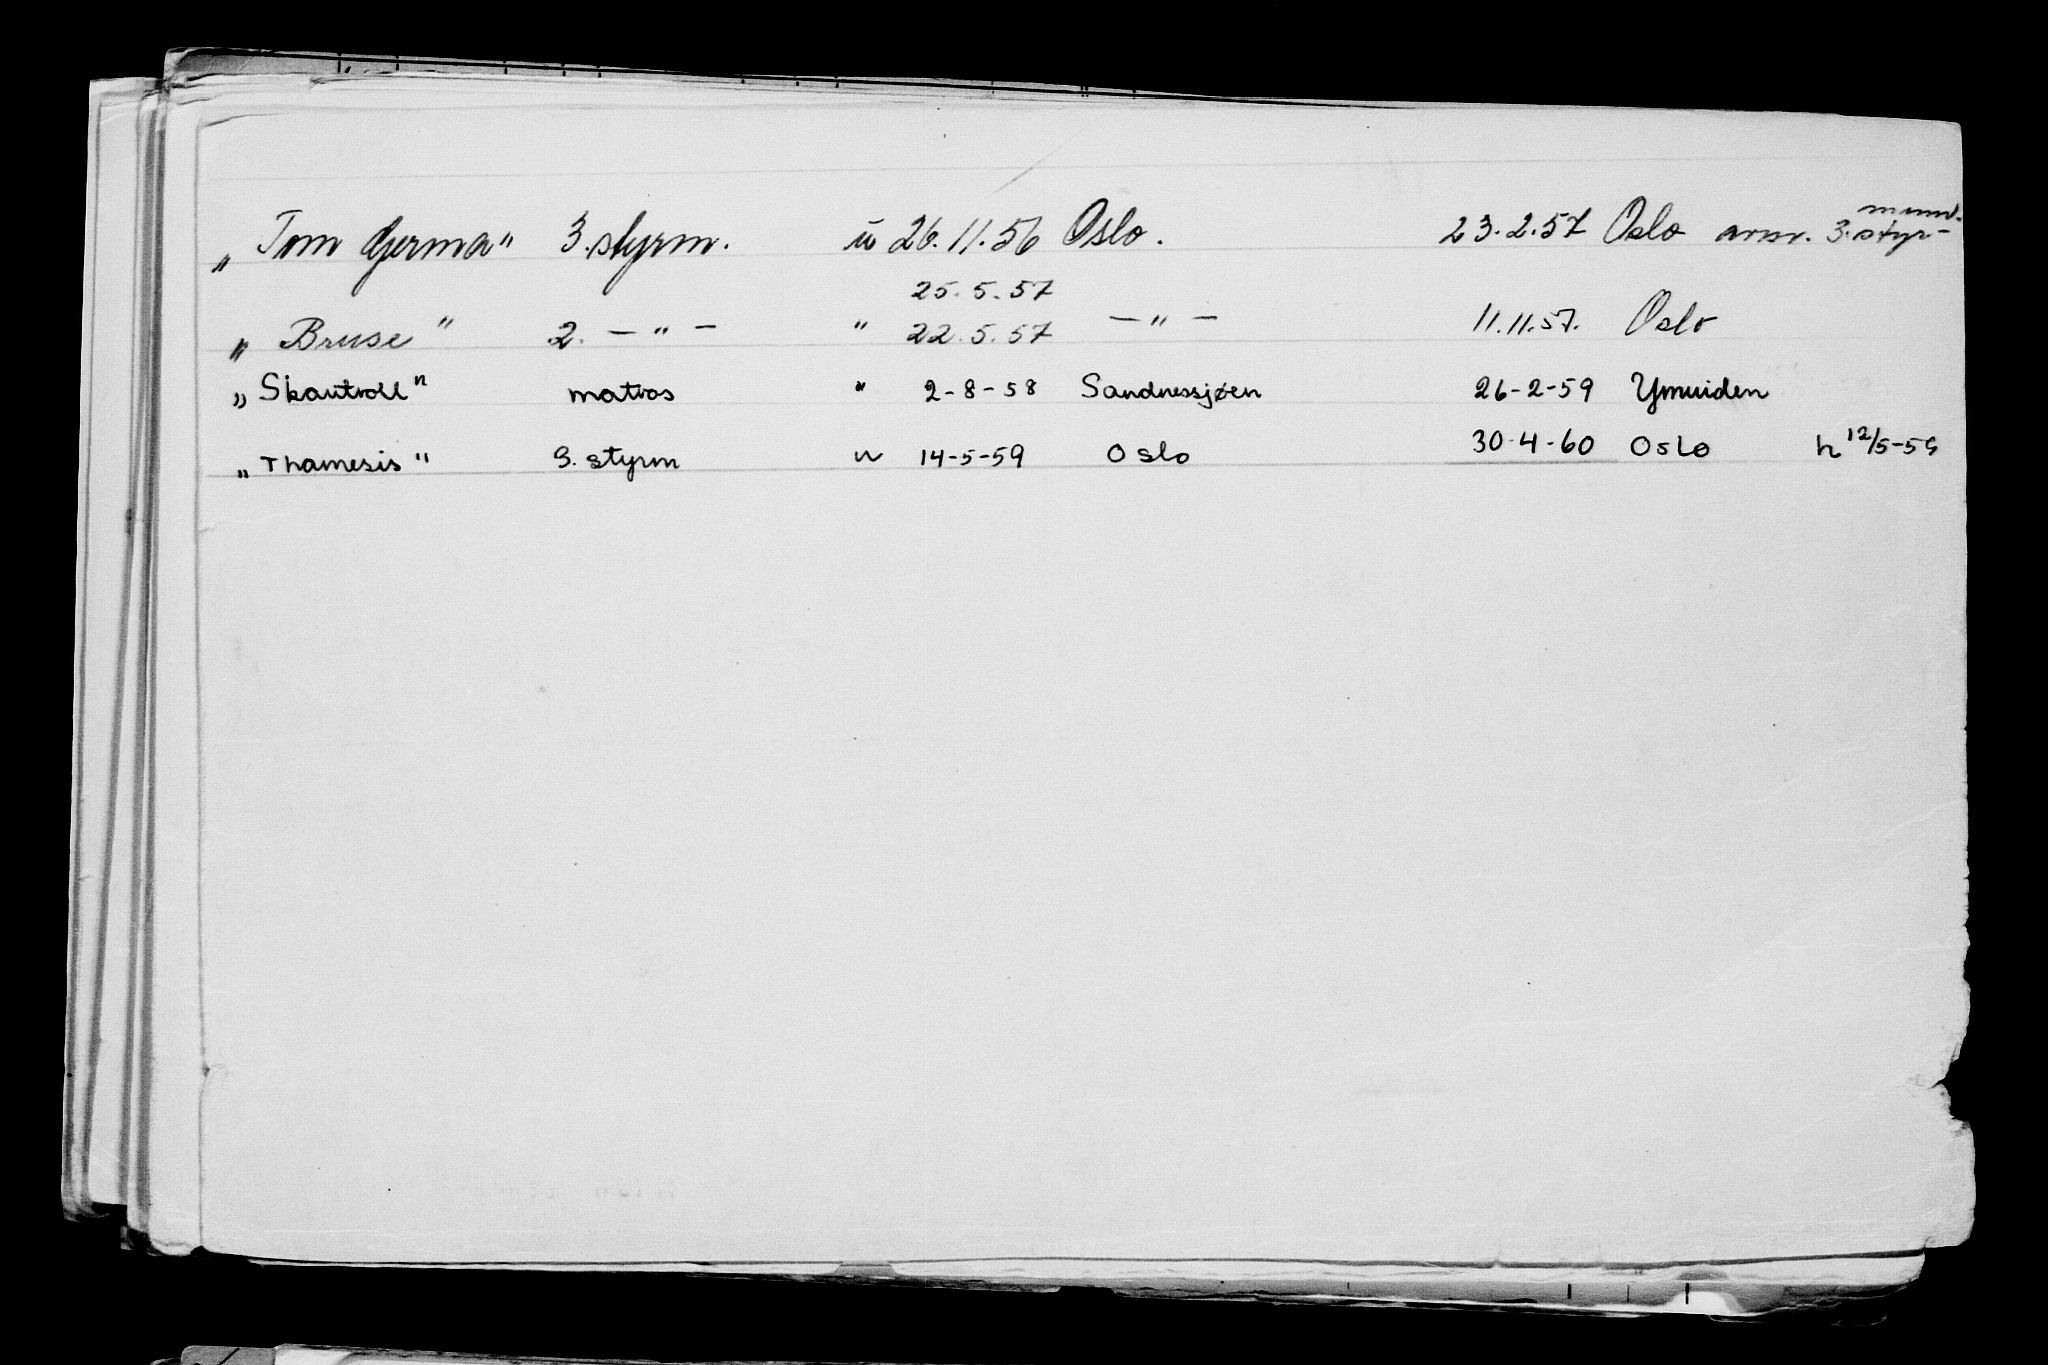 mund.
„ Tom Gjerma" 3. styrm. u 26.11.56 Oslo. 23.2.57 Oslo 3. styr-
25.5.57
„ Bruse " 2. — " — " 22.5.57 — " — 11.11.57. Oslo
„ Skautroll " matros " 2-8-58 Sandnessjøen 26-2-59 Ymuiden
„ Thamesis " 3. styrm u 14-5-59 Oslo 30-4-60 Oslo h 12/5-59